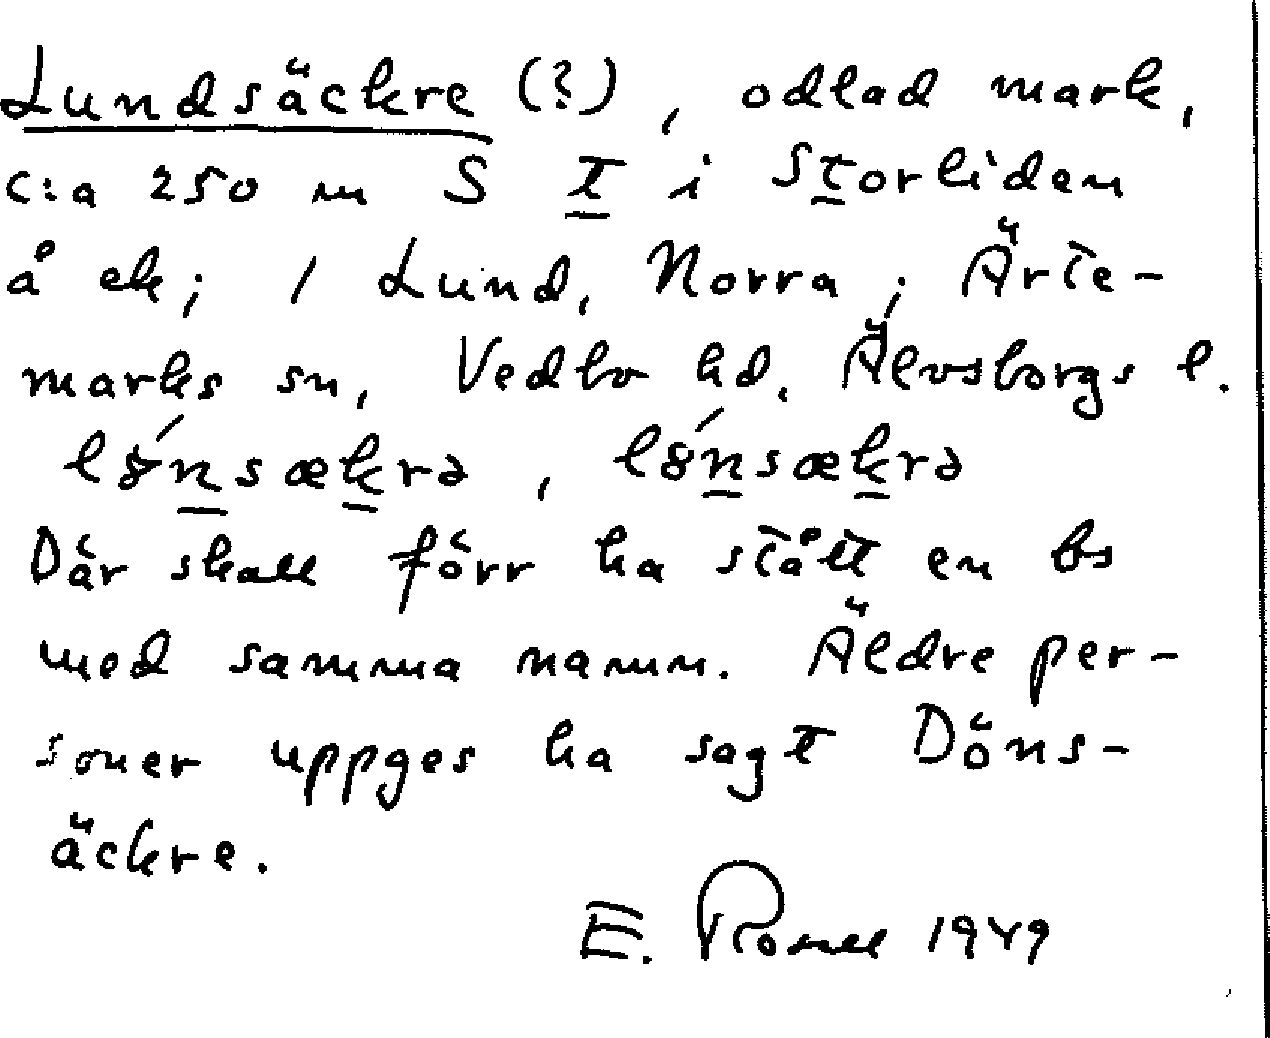 Lundsäckre (?), odlad mark,
c:a 250 m S t i Storliden
å ek; / Lund, Norra; Ärte-
marks sn, Vedbo hd. Älvsborgs l.
lǿnsækrə, l8́nsækrə
Där skall förr ha stått en bs
med samma namn. Äldre per-
soner uppges ha sagt Döns-
äckre.
E. 1949